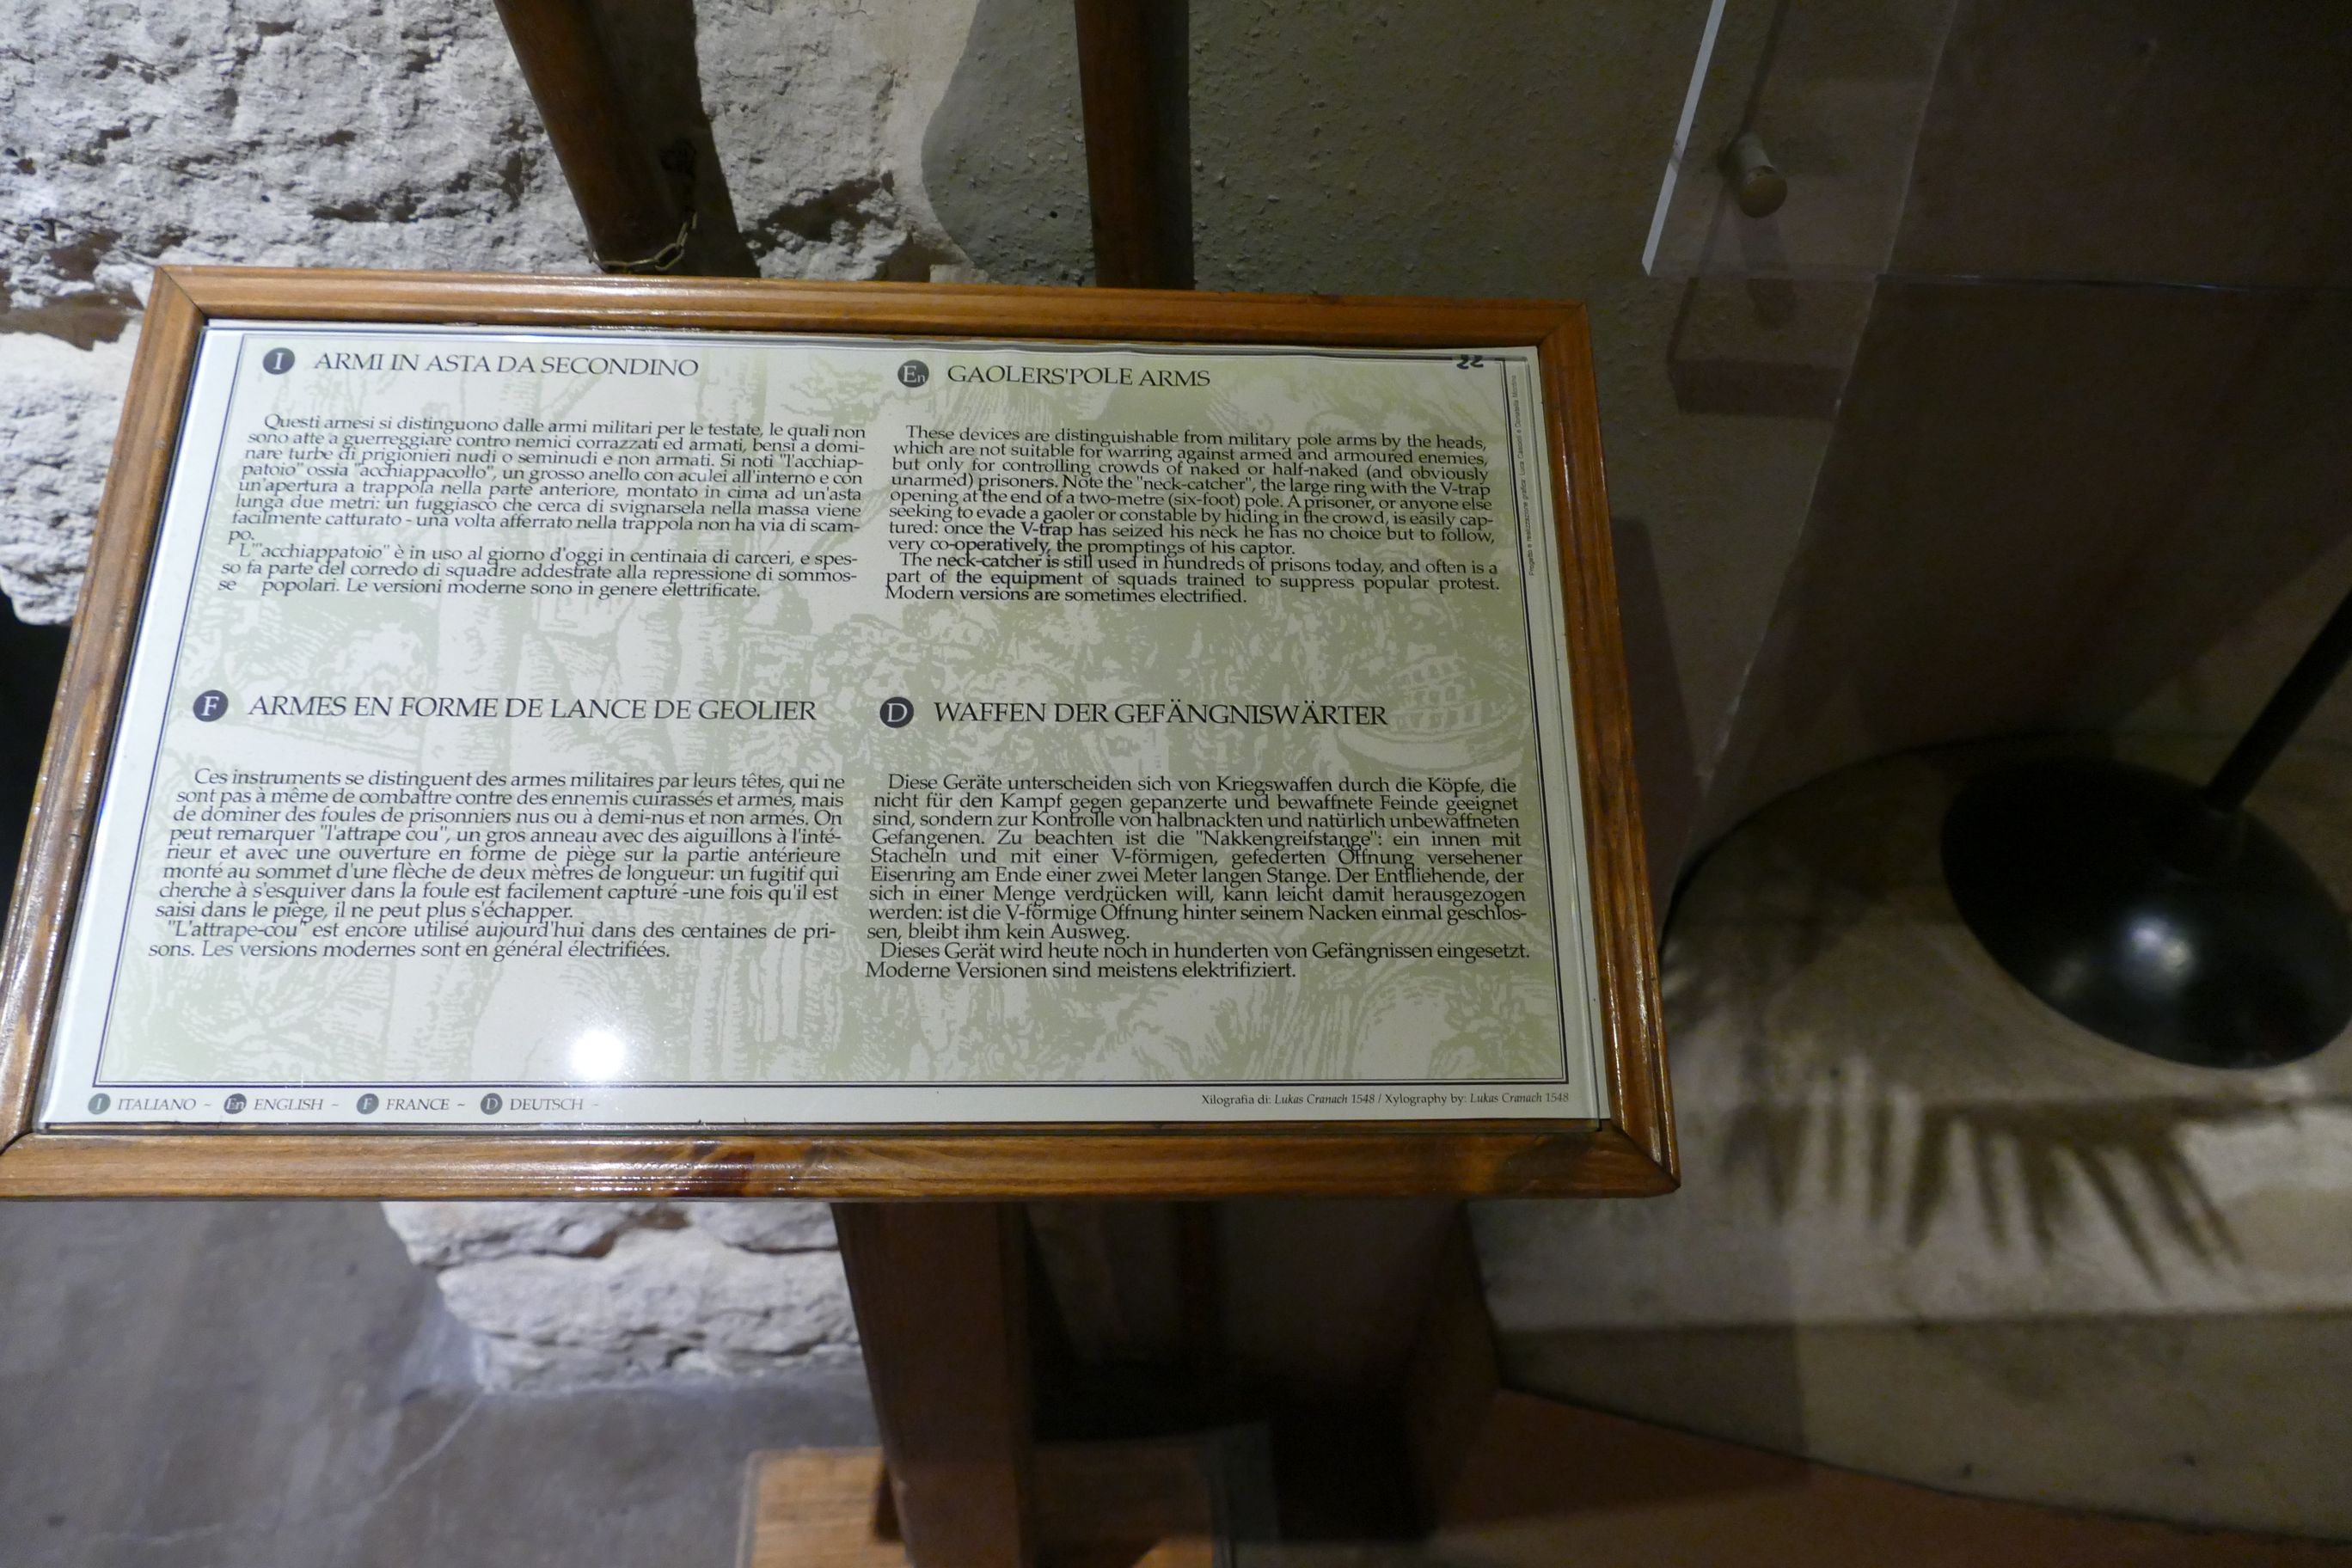 I ARMI IN ASTA DA SECONDINO
Questi arnesi si distinguono dalle armi militari per le testate, le quali non
sono atte a guerreggiare contro nemici corrazzati ed armati, bensì a domi-
nare turbe di prigionieri nudi o seminudi e non armati. Si noti "l'acchiap-
patoio" ossia "acchiappacollo", un grosso anello con aculei all'interno e con
un'apertura a trappola nella parte anteriore, montato in cima ad un'asta
lunga due metri: un fuggiasco che cerca di svignarsela nella massa viene
facilmente catturato - una volta afferrato nella trappola non ha via di scam-
po.
L'"acchiappatoio" è in uso al giorno d'oggi in centinaia di carceri, e spes-
so fa parte del corredo di squadre addestrate alla repressione di sommos-
se popolari. Le versioni moderne sono in genere elettrificate.
En GAOLERS'POLE ARMS
22
These devices are distinguishable from military pole arms by the heads,
which are not suitable for warring against armed and armoured enemies,
but only for controlling crowds of naked or half-naked (and obviously
unarmed) prisoners. Note the "neck-catcher", the large ring with the V-trap
opening at the end of a two-metre (six-foot) pole. A prisoner, or anyone else
seeking to evade a gaoler or constable by hiding in the crowd, is easily cap-
tured: once the V-trap has seized his neck he has no choice but to follow,
very co-operatively, the promptings of his captor.
The neck-catcher is still used in hundreds of prisons today, and often is a
part of the equipment of squads trained to suppress popular protest.
Modern versions are sometimes electrified.
F ARMES EN FORME DE LANCE DE GEOLIER
Ces instruments se distinguent des armes militaires par leurs têtes, qui ne
sont pas à même de combattre contre des ennemis cuirassés et armés, mais
de dominer des foules de prisonniers nus ou à demi-nus et non armés. On
peut remarquer "l'attrape cou", un gros anneau avec des aiguillons à l'inté-
rieur et avec une ouverture en forme de piège sur la partie antérieure
monté au sommet d'une flèche de deux mètres de longueur: un fugitif qui
cherche à s'esquiver dans la foule est facilement capturé -une fois qu'il est
saisi dans le piège, il ne peut plus s'échapper.
"L'attrape-cou" est encore utilisé aujourd'hui dans des centaines de pri-
sons. Les versions modernes sont en général électrifiées.
D WAFFEN DER GEFÄNGNISWÄRTER
Diese Geräte unterscheiden sich von Kriegswaffen durch die Köpfe, die
nicht für den Kampf gegen gepanzerte und bewaffnete Feinde geeignet
sind, sondern zur Kontrolle von halbnackten und natürlich unbewaffneten
Gefangenen. Zu beachten ist die "Nakkengreifstange": ein innen mit
Stacheln und mit einer V-förmigen, gefederten Öffnung versehener
Eisenring am Ende einer zwei Meter langen Stange. Der Entfliehende, der
sich in einer Menge verdrücken will, kann leicht damit herausgezogen
werden: ist die V-förmige Öffnung hinter seinem Nacken einmal geschlos-
sen, bleibt ihm kein Ausweg.
Dieses Gerät wird heute noch in hunderten von Gefängnissen eingesetzt.
Moderne Versionen sind meistens elektrifiziert.
I ITALIANO ~ En ENGLISH ~ F FRANCE ~ D DEUTSCH ~
Xilografia di: Lukas Cranach 1548 / Xylography by: Lukas Cranach 1548